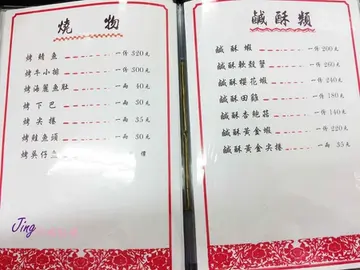 燒物
烤鯖魚 一份320元
烤牛小排 一份300元
烤海麗魚肚 一兩40元
烤下巴 一兩30元
烤尖捲 一兩35元
烤鮭魚頭 一兩30元
烤吳仔 價
鹹酥類
鹹酥蝦 一份200元
鹹酥軟殼蟹 一份260元
鹹酥櫻花蝦 一份240元
鹹酥田雞 一份180元
鹹酥杏鮑菇 一份140元
鹹酥黃金蝦 一份220元
鹹酥黃金尖捲 一兩35元
Jing